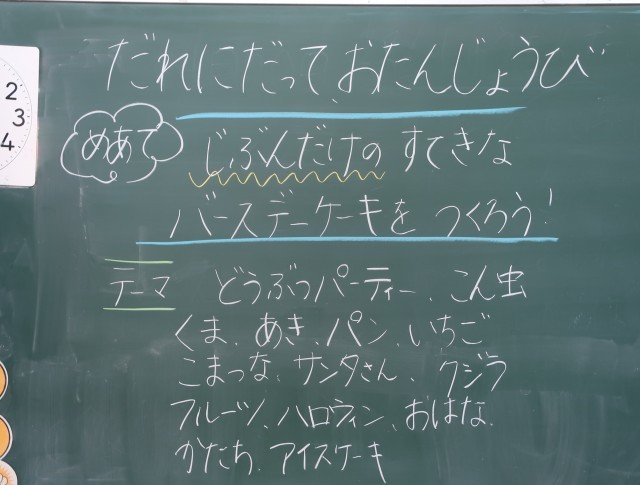 だれにだって、おたんじょうび
めあて じぶんだけの すてきな
バースデーケーキを つくろう!
テーマ どうぶつパーティー、こん虫
くま、あき、パン、いちご
こまつな、サンタさん、クジラ
フルーツ、ハロウィン、おはな、
かたち、アイスケーキ
2
3
4